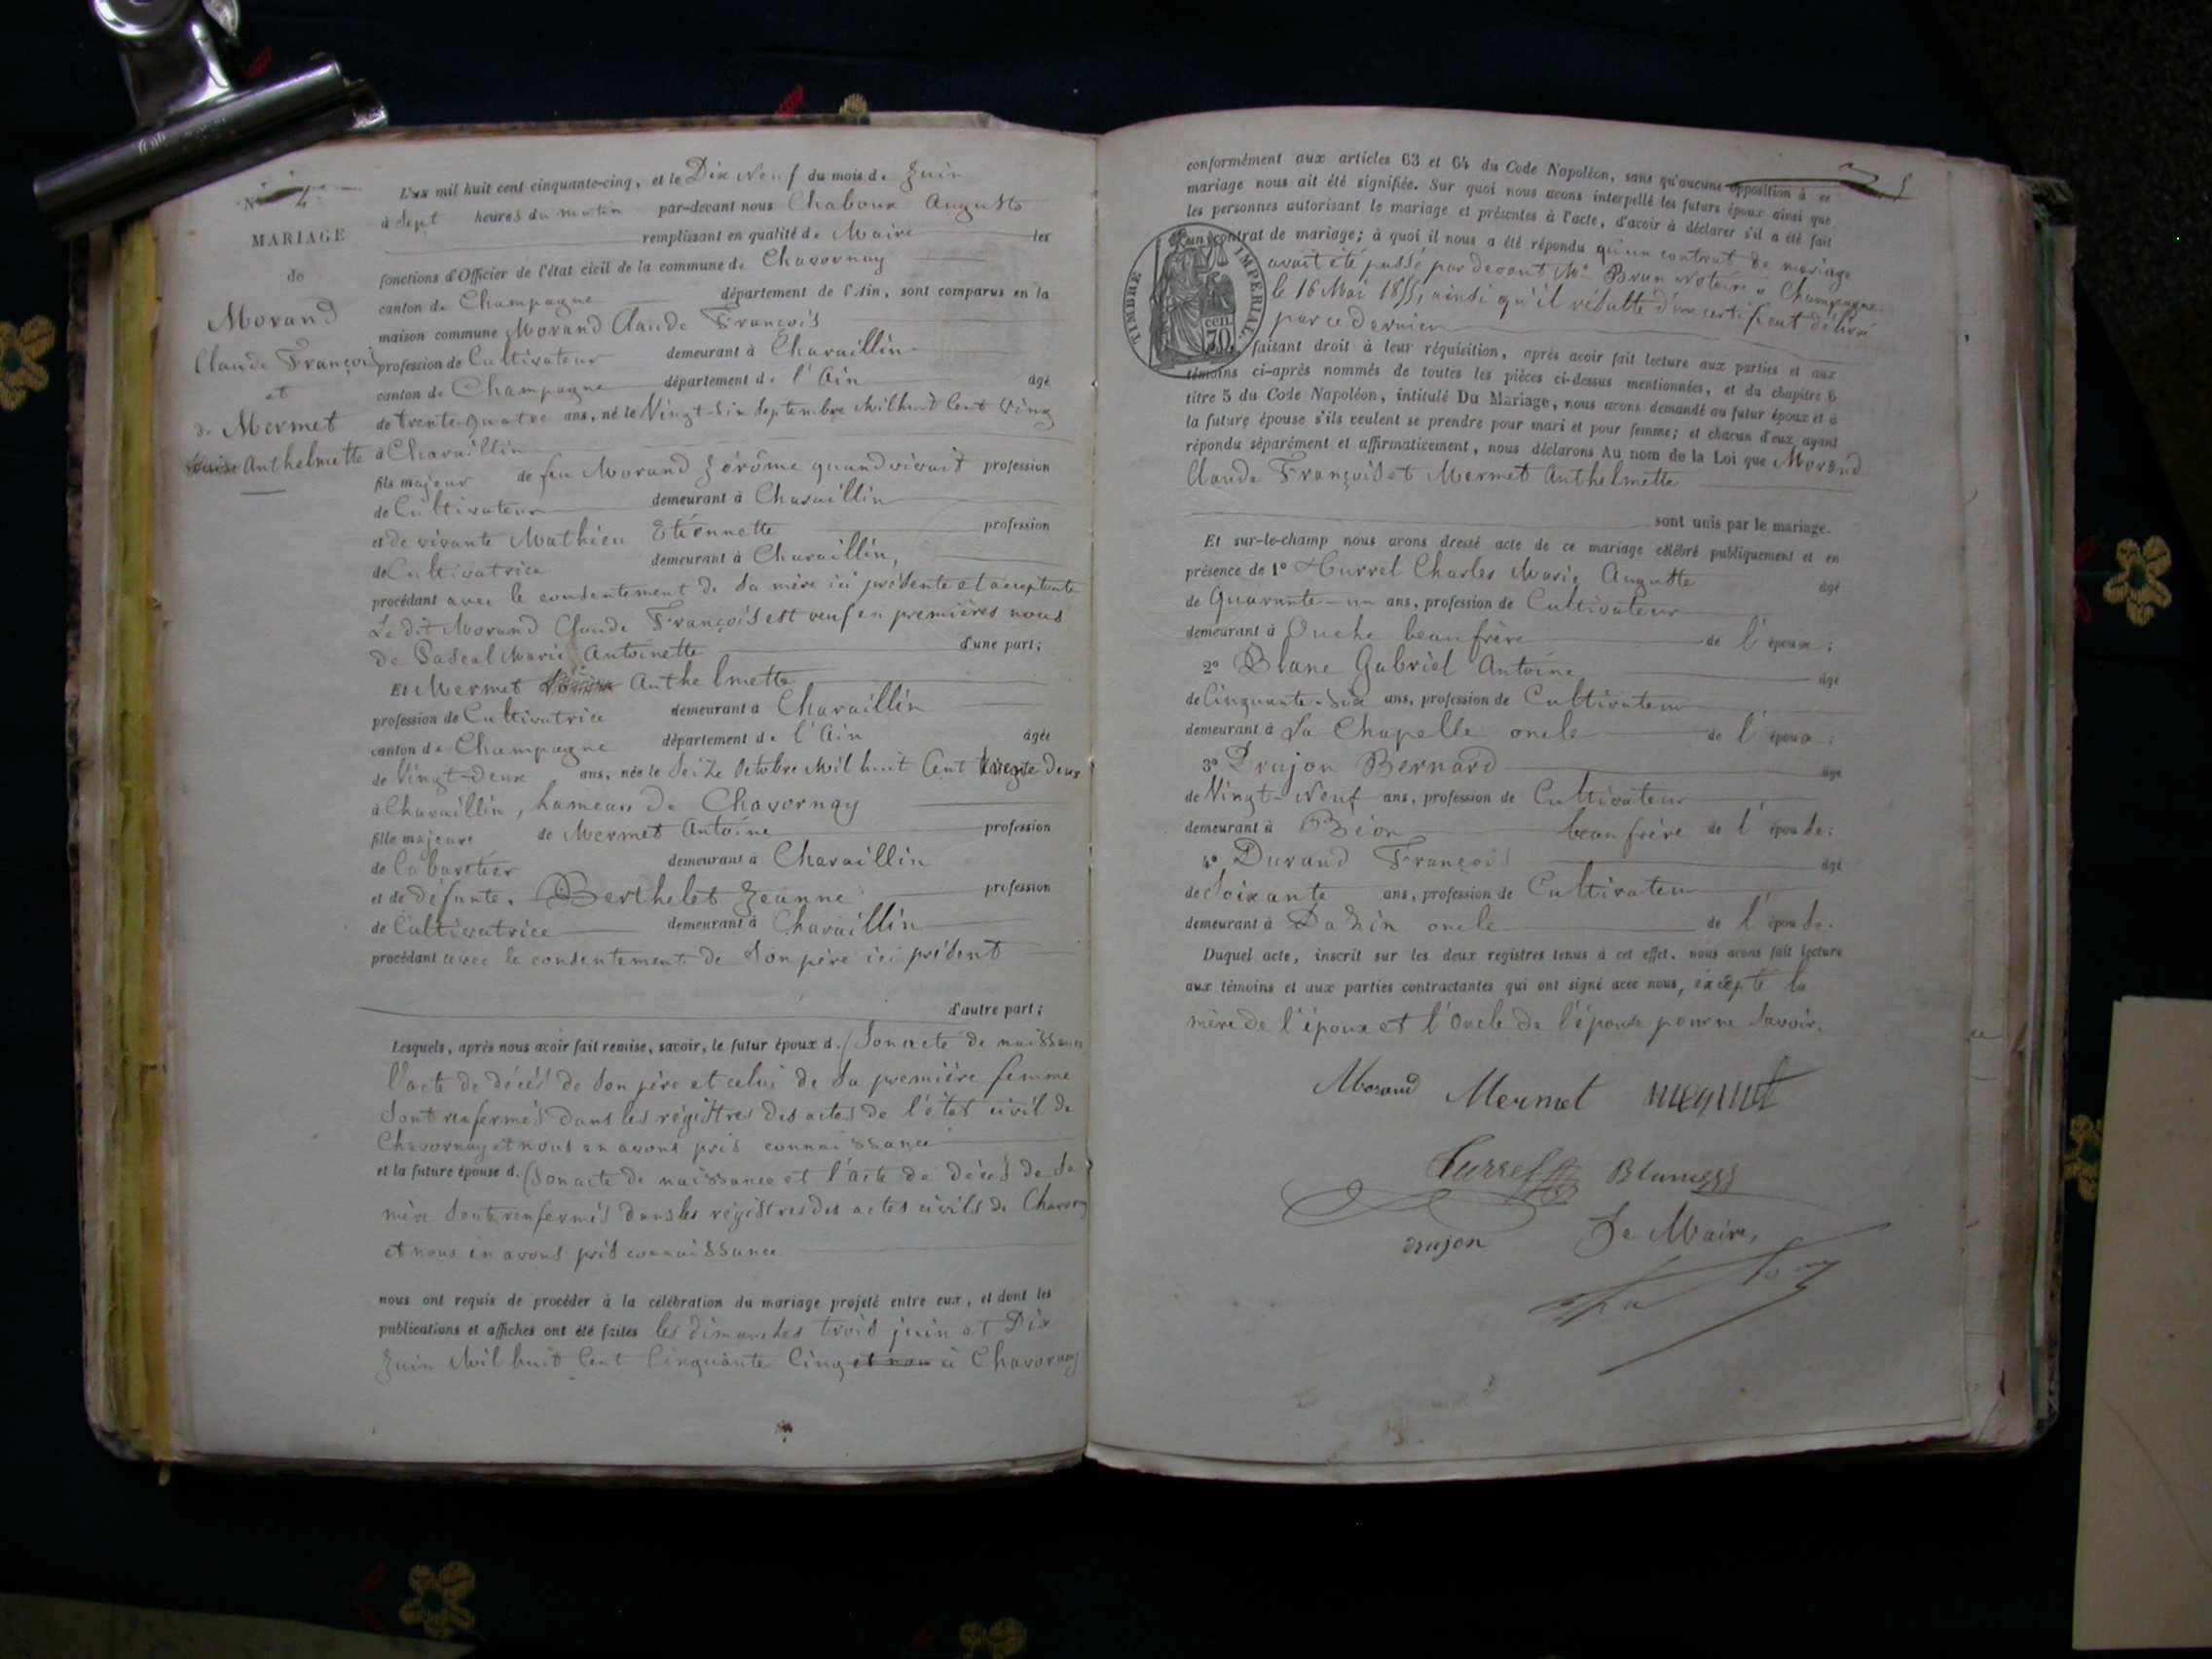 N° 4
MARIAGE
de
Morand
Claude François
et
de Mermet
Anthelmette
L'an mil huit cent cinquante-cinq, et le Dix Neuf du mois de Juin
à Sept heures du matin par-devant nous Chaboux Auguste
remplissant en qualité de Maire les
fonctions d'Officier de l'état civil de la commune de Chavornay
canton de Champagne département de l'Ain, sont comparus en la
maison commune Morand Claude François
profession de Cultivateur demeurant à Charaillin
canton de Champagne département de l'Ain âgé
de trente-quatre ans, né le Vingt-Six Septembre Mil huit Cent Vingt
à Charaillin
fils majeur de feu Morand Jérôme quand vivait profession
de Cultivateur demeurant à Charaillin
et de vivante Mathieu Etiennette profession
de Cultivatrice demeurant à Charaillin,
procédant avec le consentement de sa mère ici présente et acceptante
Le dit Morand Claude François est veuf en premières nous
de Pascal Marie Antoinette d'une part;
Et Mermet Anthelmette
profession de Cultivatrice demeurant à Charaillin
canton de Champagne département de l'Ain âgée
de Vingt-deux ans, née le Seize Octobre Mil huit Cent trente Deux
à Charaillin, hameau de Chavornay
fille majeure de Mermet Antoine profession
de Cabaretier demeurant à Charaillin
et de défunte. Berthelet Jeanne profession
de Cultivatrice demeurant à Charaillin
procédant avec le consentement de son père ici présent
d'autre part;
Lesquels, après nous avoir fait remise, savoir, le futur époux d. (Son acte de naissance
l'acte de décès de son père et celui de sa première femme
sont renfermés dans les régistres des actes de l'état civil de
Chavornay et nous en avons pris connaissance
et la future épouse d. (Son acte de naissance et l'acte de décès de sa
mère sont renfermés dans les régistres des actes civils de Chavorny
et nous en avons pris connaissance
nous ont requis de procéder à la célébration du mariage projeté entre eux, et dont les
publications et affiches ont été faites les dimanches trois juin et Dix
Juin Mil huit Cent Cinquante Cinq et non à Chavornay
conformément aux articles 63 et 64 du Code Napoléon, sans qu'aucune opposition à ce
mariage nous ait été signifiée. Sur quoi nous avons interpellé les futurs époux ainsi que
les personnes autorisant le mariage et présentes à l'acte, d'avoir à déclarer s'il a été fait
un contrat de mariage; à quoi il nous a été répondu qu'un contrat de mariage
avait été passé par devant Me Brun Notaire à Champagne
le 16 Mai 1855, ainsi qu'il résulte d'un certificat délivré
par ce dernier
TIMBRE IMPERIAL.
70 cen.
faisant droit à leur réquisition, après avoir fait lecture aux parties et aux
témoins ci-après nommés de toutes les pièces ci-dessus mentionnées, et du chapitre 6
titre 5 du Code Napoléon, intitulé Du Mariage, nous avons demandé au futur époux et à
la future épouse s'ils veulent se prendre pour mari et pour femme; et chacun d'eux ayant
répondu séparément et affirmativement, nous déclarons Au nom de la Loi que Morand
Claude François et Mermet Anthelmette
sont unis par le mariage.
Et sur-le-champ nous avons dressé acte de ce mariage célébré publiquement et en
présence de 1° Hurrel Charles Marie Auguste âgé
de Quarante-un ans, profession de Cultivateur
demeurant à Ouche beau frère de l'époux;
2° Blanc Gabriel Antoine âgé
de Cinquante-six ans, profession de Cultivateur
demeurant à La Chapelle oncle de l'époux;
3° Drujon Bernard âgé
de Vingt-Neuf ans, profession de Cultivateur
demeurant à Béon beau frère de l'épouse;
4° Durand François âgé
de Soixante ans, profession de Cultivateur
demeurant à Dazin oncle de l'épouse.
Duquel acte, inscrit sur les deux registres tenus à cet effet, nous avons fait lecture
aux témoins et aux parties contractantes qui ont signé avec nous, excepté la
mère de l'époux et l'oncle de l'épouse pour ne savoir.
Morand Mermet mermet
Blanc
drujon Le Maire,